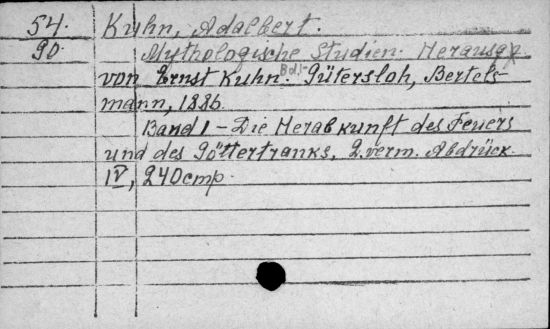 54. Kuhn, Adalbert.
90. Mythologische Studien. Herausg.
von Ernst Kuhn. Bd.1- Gütersloh, Bertels-
mann, 1886.
Band 1 – Die Herabkunft des Feuers
und des Göttertranks, 2. verm. Abdrück.
IV, 240 cmp.